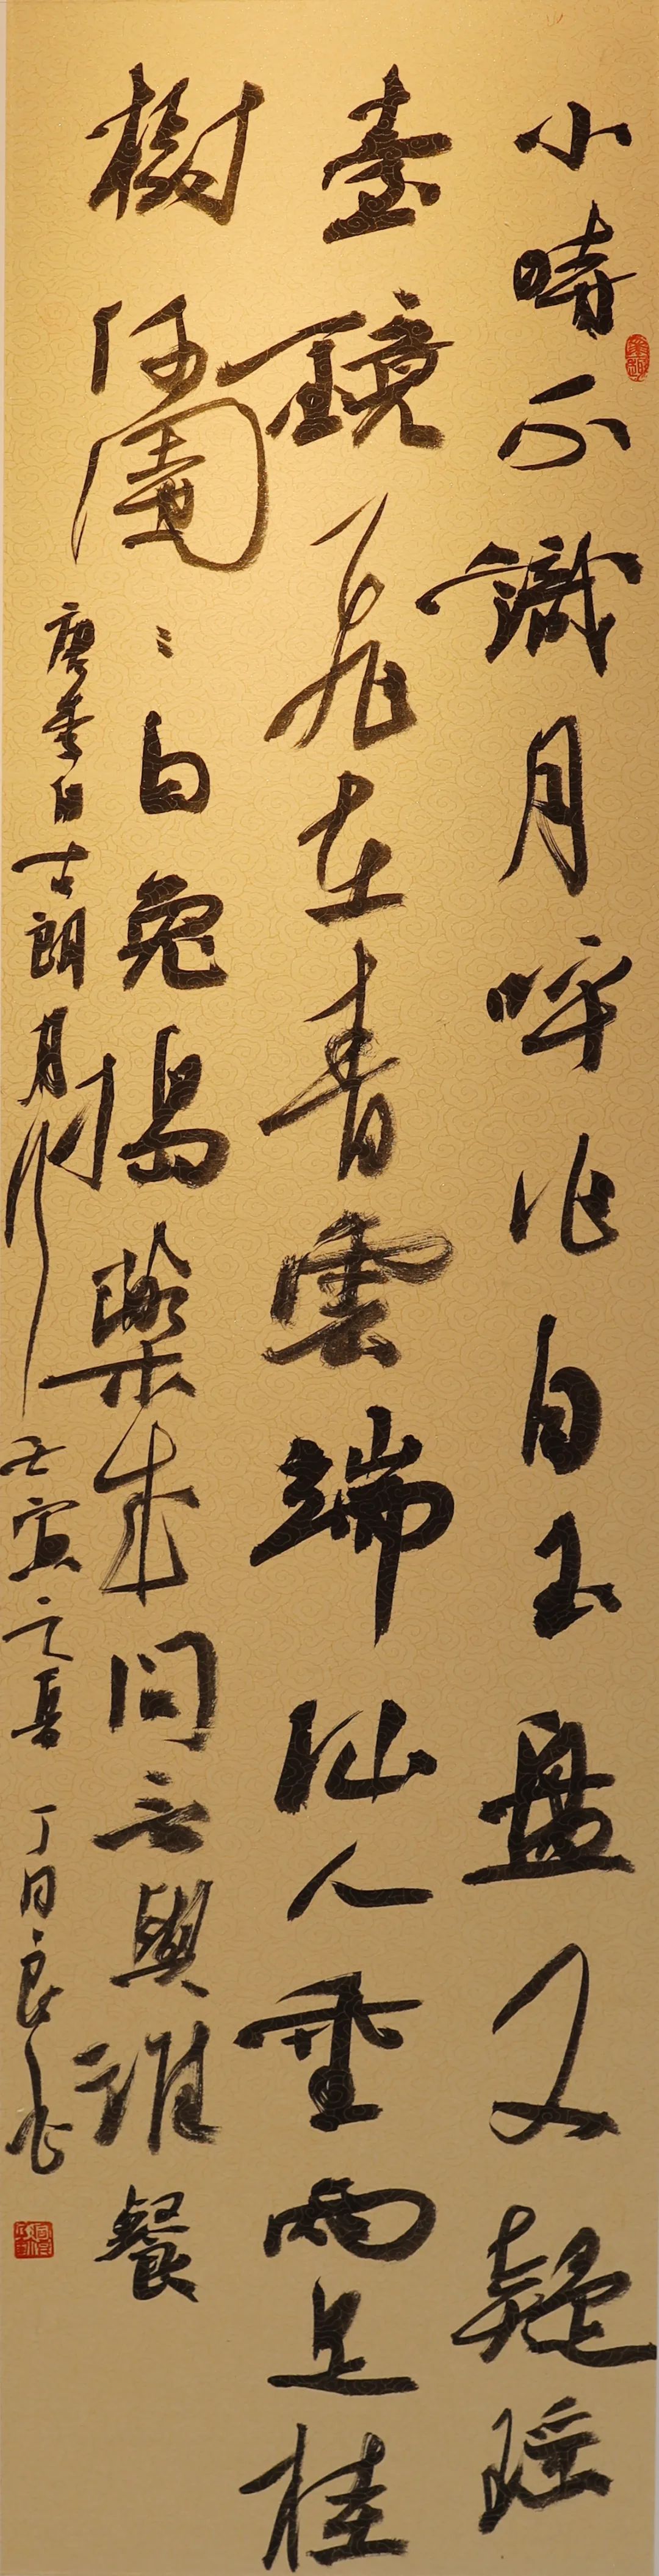 小時不識月呼作白玉盤又疑瑤
臺鏡飛在青雲端仙人垂兩足桂
樹何團〻白兔搗藥成問言與誰餐
唐李白古朗月行 壬寅之春